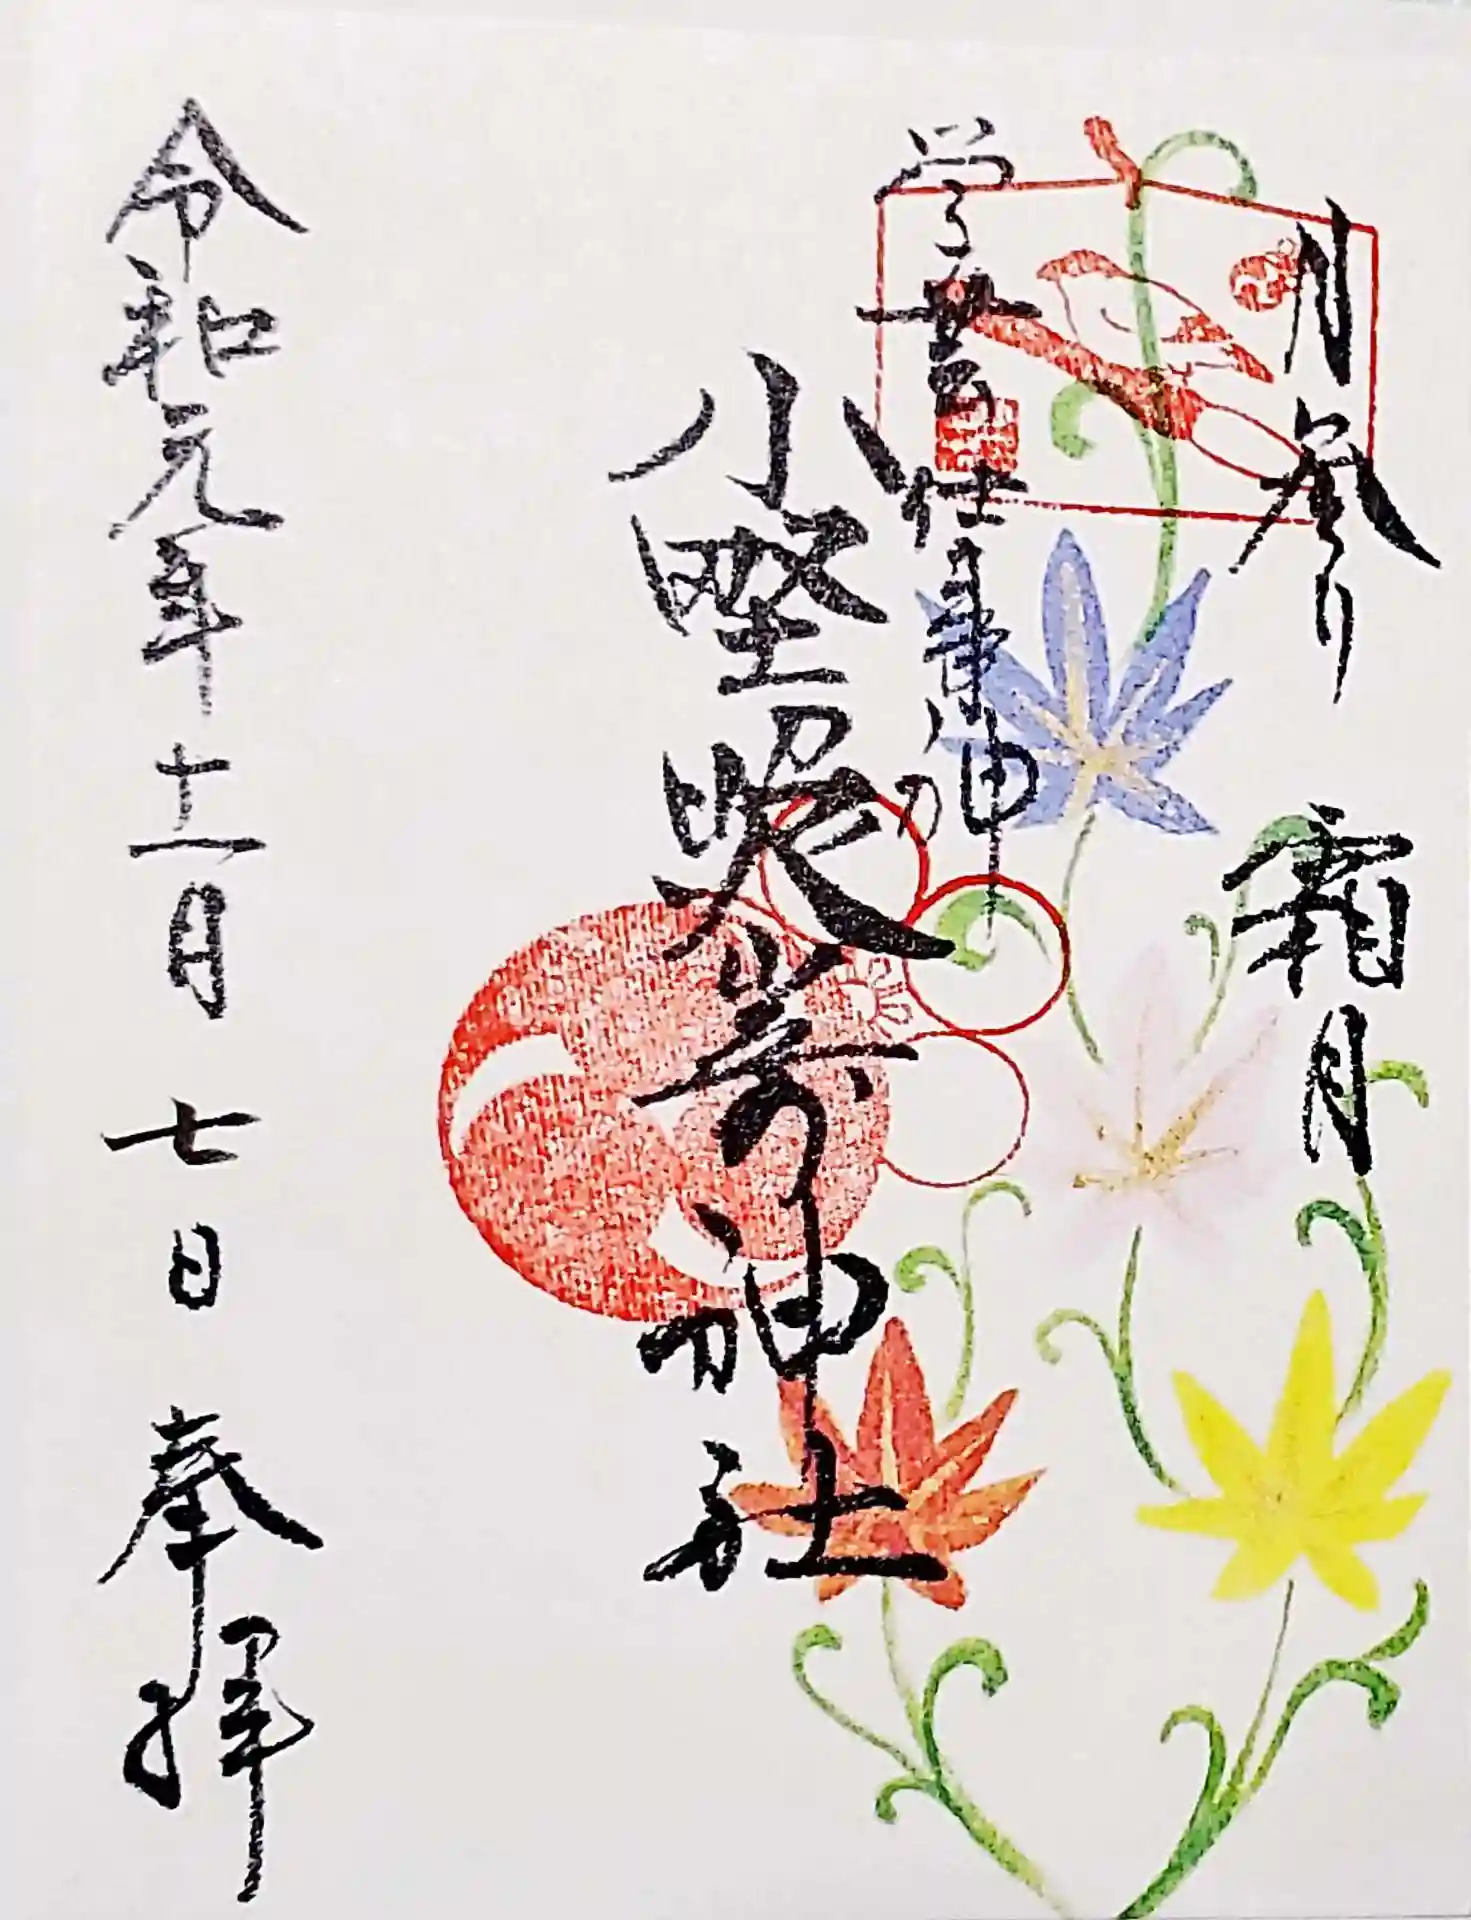 月参り 霜月
学芸仕事神
小野照崎神社
令和元年十一月七日 奉拝